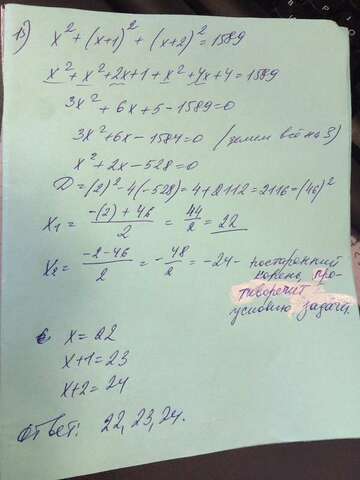 15) x² + (x+1)² + (x+2)² = 1589
x² + x² + 2x + 1 + x² + 4x + 4 = 1589
3x² + 6x + 5 - 1589 = 0
3x² + 6x - 1584 = 0 (делим всё на 3)
x² + 2x - 528 = 0
D = (2)² - 4(-528) = 4 + 2112 = 2116 - (46)²
x₁ = (-(2) + 46)/2 = 44/2 = 22
x₂ = (-2 - 46)/2 = -48/2 = -24 - посторонний
корень, про-
тиворечит
условию задачи.
x = 22
x+1 = 23
x+2 = 24
Ответ: 22, 23, 24.